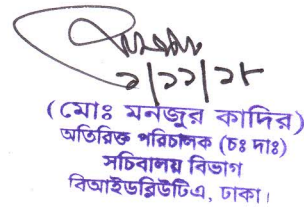 ২/১২/২৮
(মোঃ মনজুর কাদির)
অতিরিক্ত পরিচালক (চঃ দাঃ)
সচিবালয় বিভাগ
বিআইডব্লিউটিএ, ঢাকা।